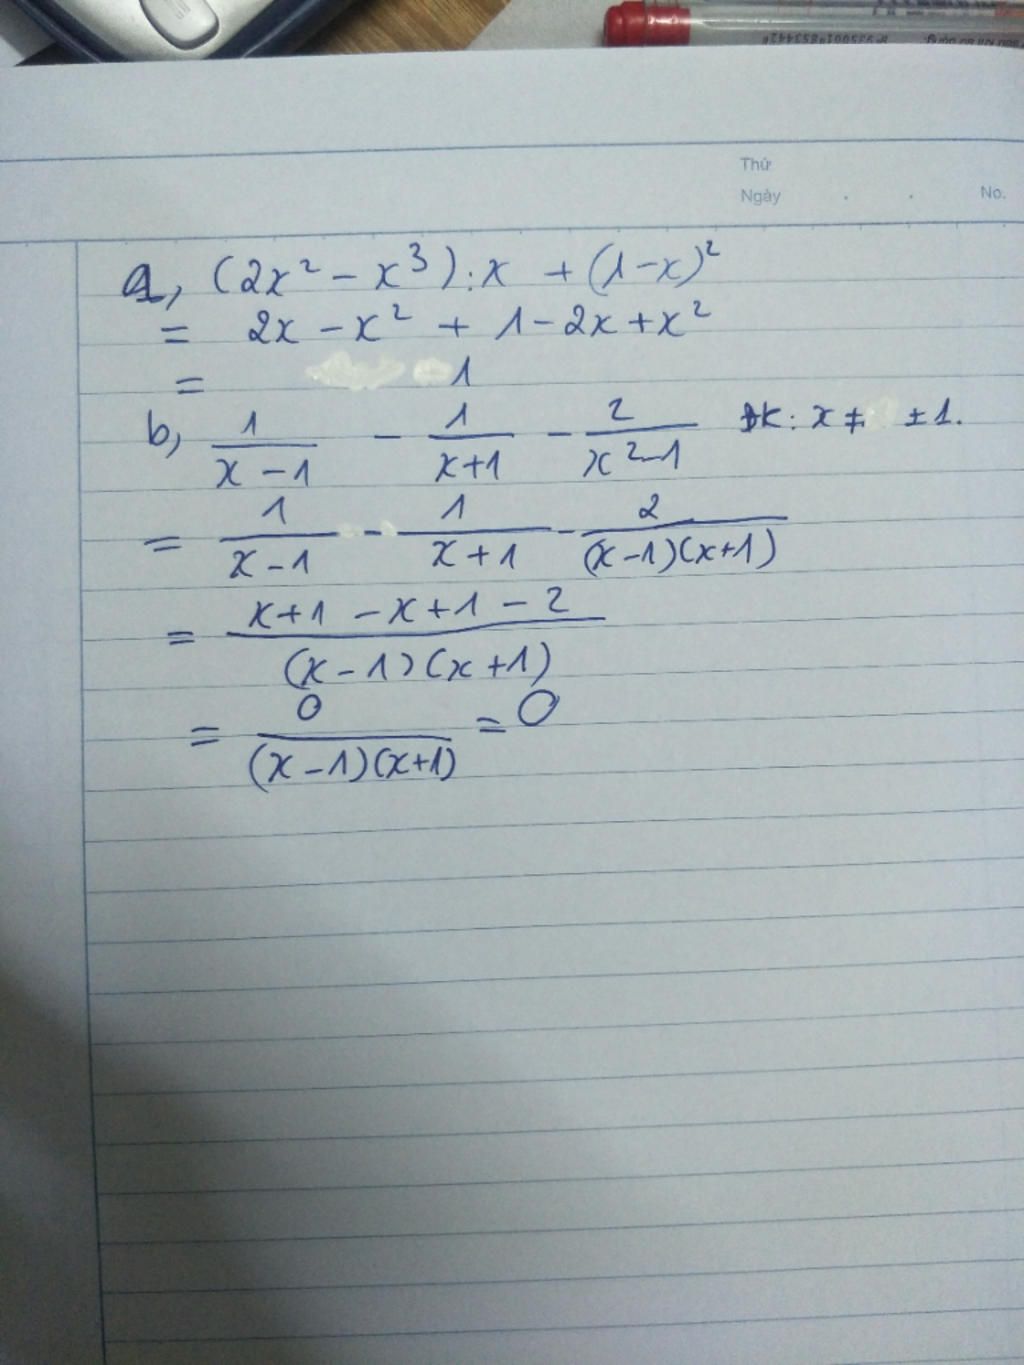 Thứ
Ngày . . No.
a, (2x² - x³) : x + (1-x)²
= 2x - x² + 1 - 2x + x²
= 1
b, 1/(x-1) - 1/(x+1) - 2/(x²-1) ĐK: x ≠ ±1.
= 1/(x-1) - 1/(x+1) - 2/((x-1)(x+1))
= (x+1 - x+1 - 2)/((x-1)(x+1))
= 0/((x-1)(x+1)) = 0